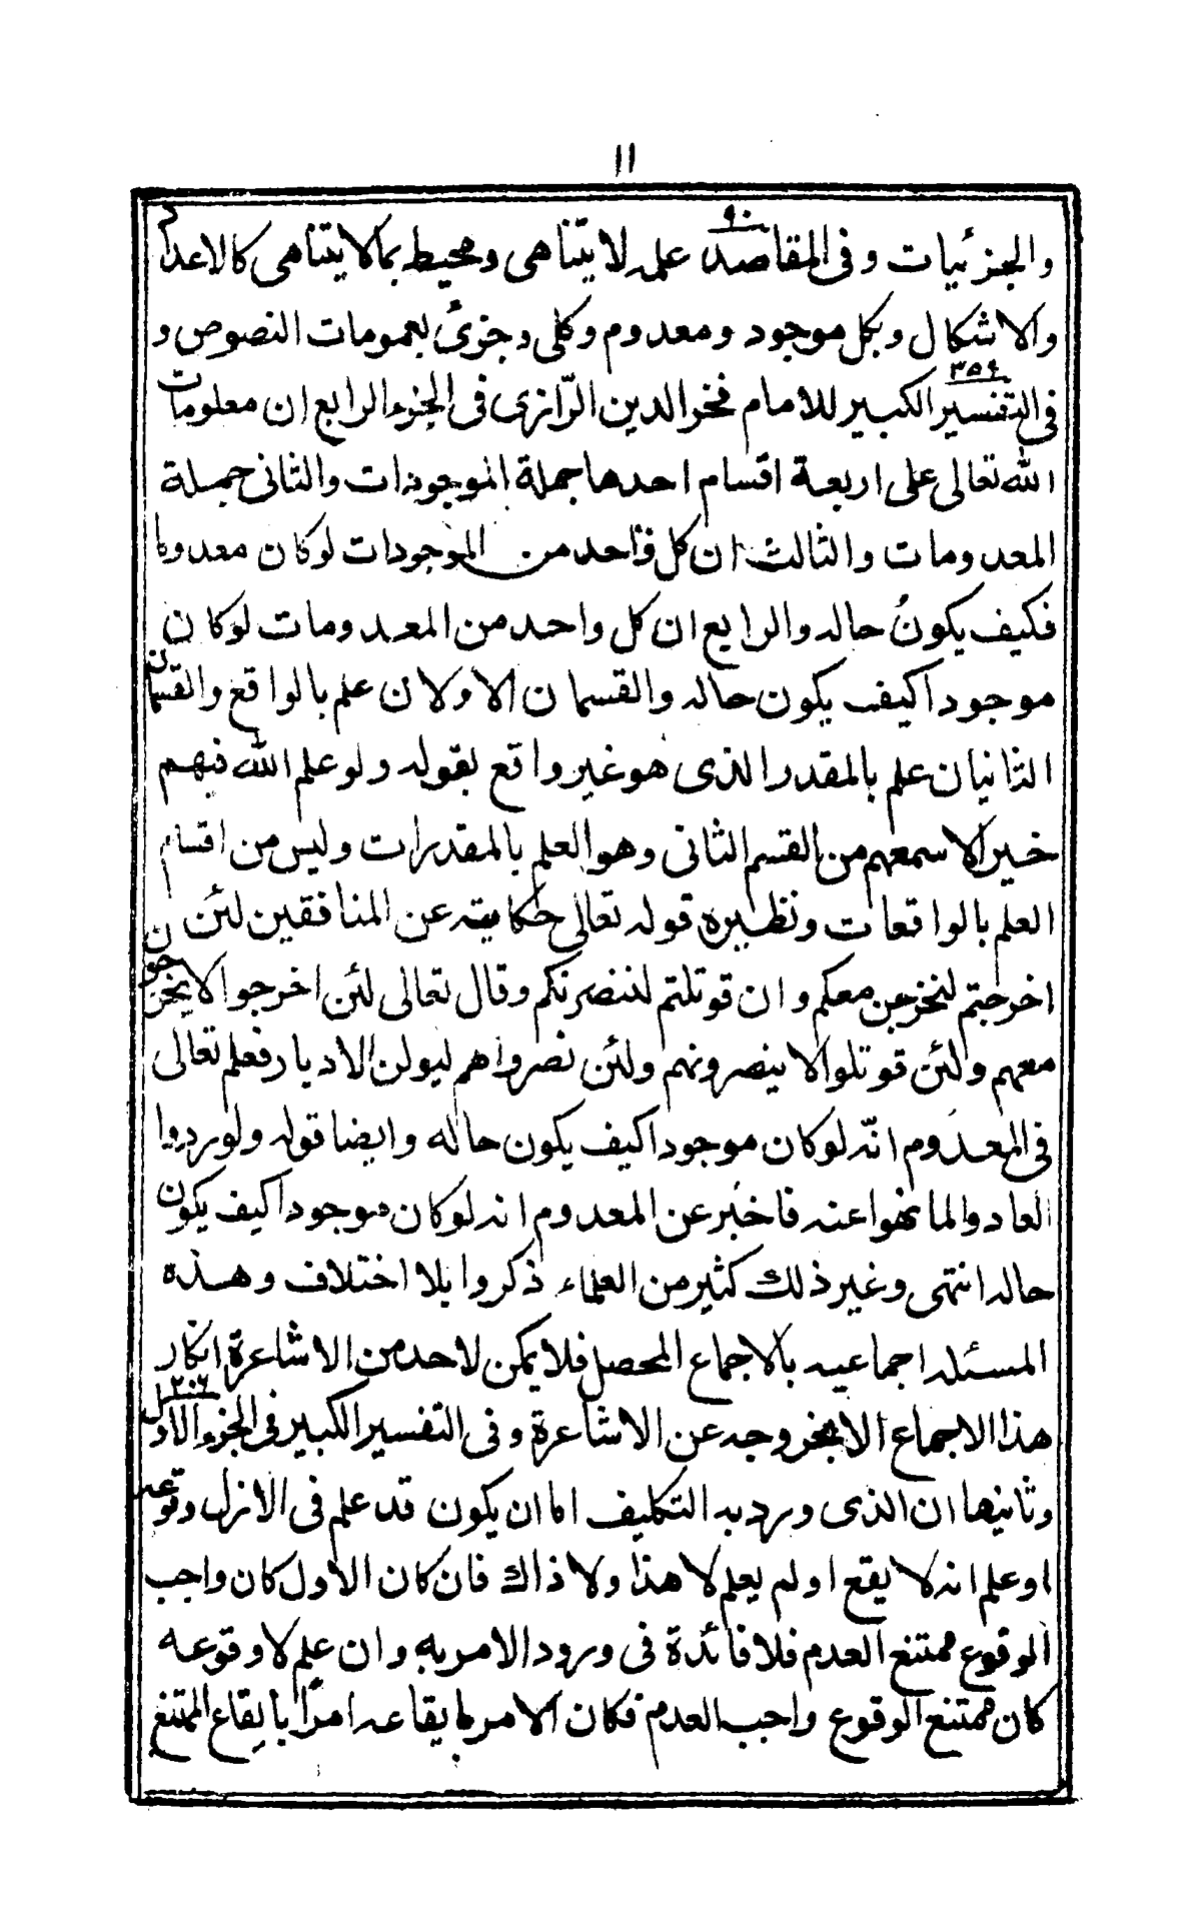 ١١
والجزئيات وفى المقاصد ٩٠ علمه لا يتناهى ومحيط بما لا يتناهى كالاعداد
والاشكال وبكل موجود ومعدوم وكلى وجزئ لعمومات النصوص و
فى التفسير ٣٥٤ الكبير للامام فخر الدين الرّازى فى الجزء الرابع ان معلومات
الله تعالى على اربعة اقسام احدها جملة الموجودات والثانى جملة
المعدومات والثالث ان كل واحد من الموجودات لو كان معدوما
فكيف يكونُ حاله والرابع ان كل واحد من المعدومات لوكان
موجودا كيف يكون حاله والقسمان الاولان علم بالواقع والقسمان
الثانيان علم بالمقدر الذى هو غير واقع بقوله ولو علم الله فيهم
خيرا لاسمعهم من القسم الثانى وهو العلم بالمقدرات وليس من اقسام
العلم بالواقعات ونظيره قوله تعالى حكاية عن المنافقين لئن
اخرجتم لنخرجن معكم وان قوتلتم لننصرنكم وقال تعالى لئن اخرجوا لا يخرجون
معهم ولئن قوتلوا لا ينصرونهم ولئن نصرواهم ليولن الادبار فعلم تعالى
فى المعدوم انّه لوكان موجودا كيف يكون حاله وايضا قوله ولو ردوا
لعادوا لما نهوا عنه فاخبر عن المعدوم انه لوكان موجودا كيف يكون
حاله انتهى وغير ذلك كثير من العلماء ذكروا بلا اختلاف وهذه
المسئله اجماعيه بالاجماع المحصل فلا يمكن لاحد من الاشاعرة انكار
هذا الاجماع الا بخروجه عن الاشاعرة وفى التفسير الكبير فى الجزء ٢٠٦ الاول
وثانيها ان الذى ورد به التكليف اما ان يكون قد علم فى الازل وقوعه
او علم انه لا يقع او لم يعلم لا هذا ولا ذاك فان كان الاول كان واجب
الوقوع ممتنع العدم فلا فائدة فى ورود الامر به وان علم لا وقوعه
كان ممتنع الوقوع واجب العدم فكان الامر بايقاعه امرًا بايقاع الممتنع